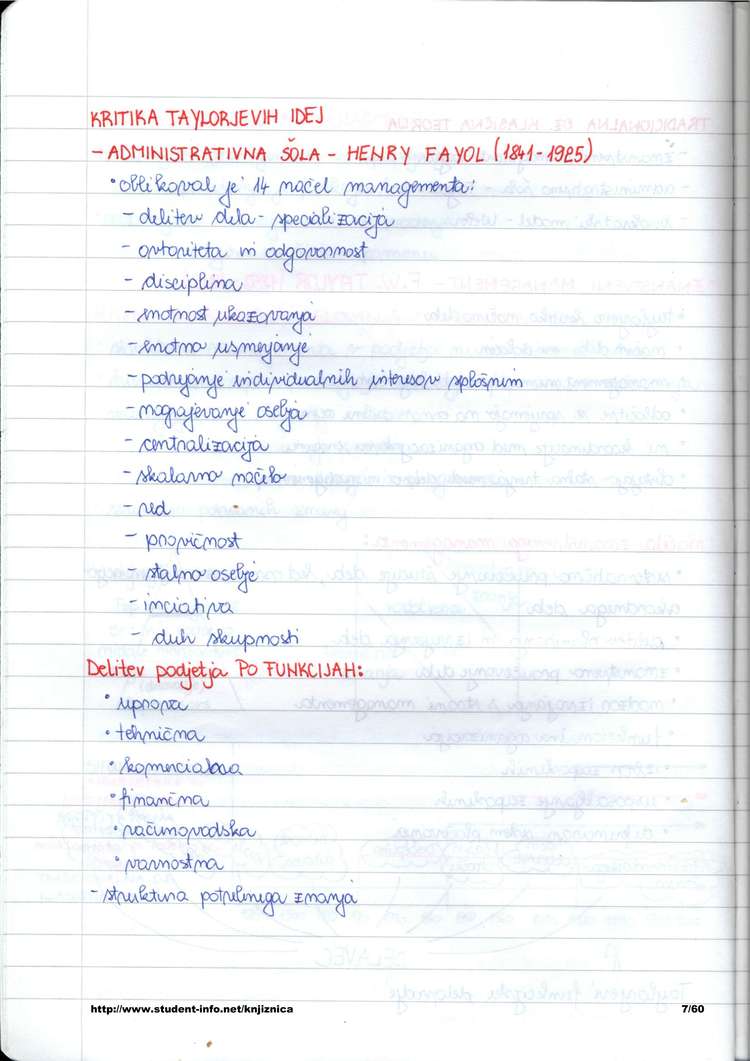 KRITIKA TAYLORJEVIH IDEJ
- ADMINISTRATIVNA ŠOLA - HENRY FAYOL (1841-1925)
• oblikoval je 14 načel managementa:
- delitev dela - specializacija
- avtoriteta in odgovornost
- disciplina
- enotnost ukazovanja
- enotno usmerjanje
- podrejanje individualnih interesov splošnim
- nagrajevanje osebja
- centralizacija
- skalarno načelo
- red
- pravičnost
- stalno osebje
- inciativa
- duh skupnosti
Delitev podjetja PO FUNKCIJAH:
• uprava
• tehnična
• komercialna
• finančna
• računovodska
• varnostna
- struktura potrebnega znanja
http://www.student-info.net/knjiznica 7/60